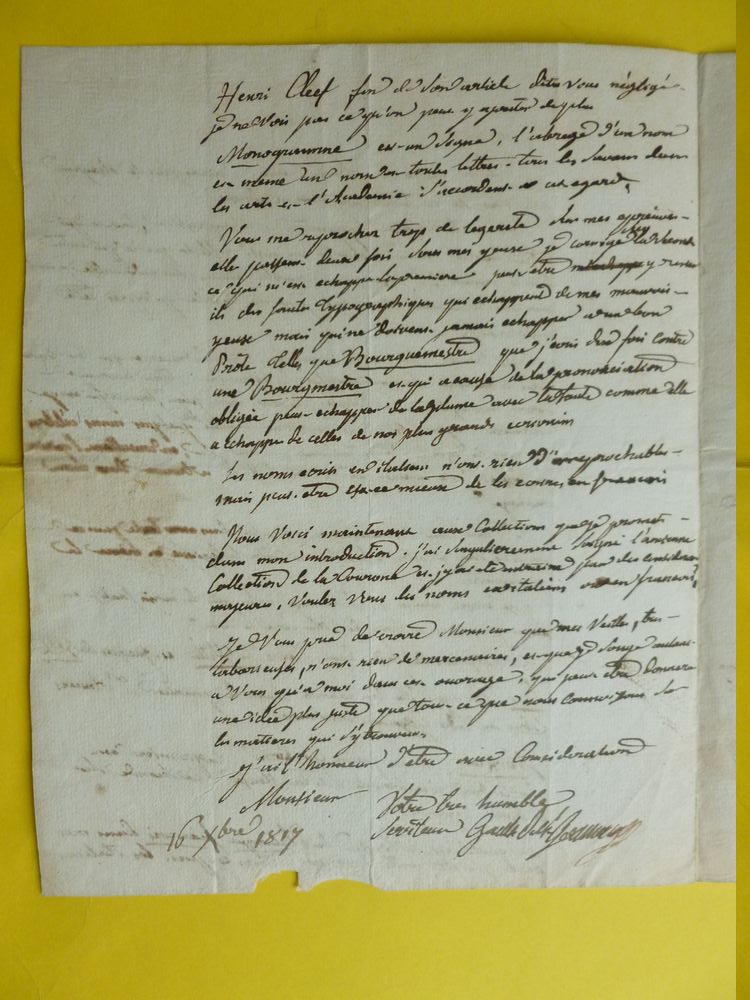 Henri Cleef fin de son article dites vous négligé.
je ne vois pas ce qu'on peut y ajouter de plus
Monogramme est un signe, l'abregé d'un nom
et meme un nom en toutes lettres. tous les savans dans
les arts et l'Academie s'accordent a cet egard,
Vous me reprochez trop de legereté dans mes epreuves
elle passent deux fois sous mes yeux je corrige
ce qui m'est echappé la premiere peut etre y reste
ils des fautes typographiques qui echappent de mes mauvais
yeux mais qui ne doivent jamais echapper a un bon
Prote telles que Bourguemestre que j'ecris dix fois contre
une Bourgmestre et qui a cause de la prononciation
obligée peut echapper de la plume avec la faute comme elle
a echappé de celles de nos plus grands ecrivains
Les noms ecris en italien n'ont rien d'irreprochable
mais peut etre est-ce mieux de les ecrire en francais
Nous voici maintenant aux Collections que je promets
dans mon introduction. j'ai singulierement soigné l'ancienne
Collection de la Couronne et j'y ai été par des
majeures. Voulez vous les noms en italien ou en francais?
Je vous prie de croire Monsieur que mes Veilles, tres
laborieuses, n'ont rien de mercenaires, et que je songe autant
a Vous qu'a moi dans cet ouvrage. qui peut etre donnera
une idée plus juste que tout ce que nous connoissons sur
les matieres qui s'y trouvent.
J'ai l'honneur d'etre avec Consideration
Monsieur Votre tres humble
16 Xbre 1817 Serviteur Gault de St Germain